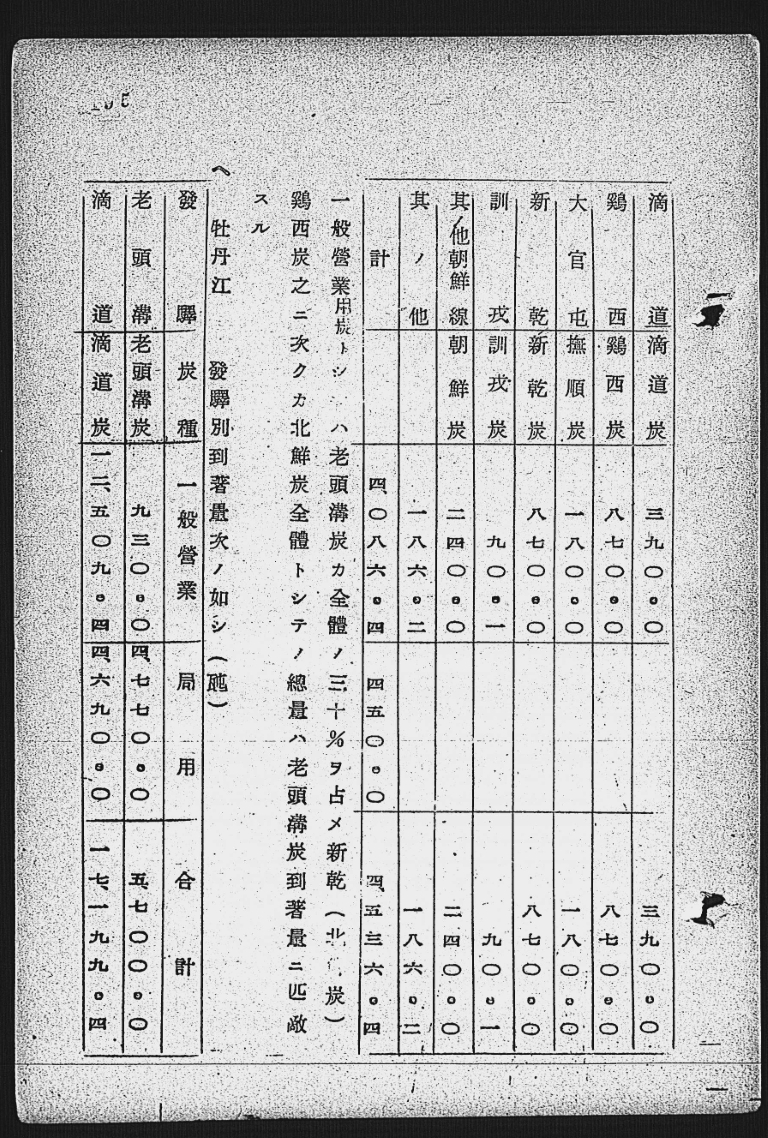 滴道 滴道炭 三九〇.〇 三九〇.〇
鷄西 鷄西炭 八七〇.〇 八七〇.〇
大官屯 撫順炭 一八〇.〇 一八〇.〇
新乾 新乾炭 八七〇.〇 八七〇.〇
訓戎 訓戎炭 九〇.一 九〇.一
其ノ他朝鮮線 朝鮮炭 二四〇.〇 二四〇.〇
其ノ他 一八六.二 一八六.二
計 四、〇八六.四 四五〇.〇 四、五三六.四
一般營業用炭トシ ハ老頭溝炭カ全體ノ三十%ヲ占メ新乾(北 炭)
鷄西炭之ニ次クカ北鮮炭全體トシテノ總量ハ老頭溝炭到著量ニ匹敵
スル
ヘ 牡丹江 發驛別到著量次ノ如シ(瓲)
發驛 炭種 一般營業 局用 合計
老頭溝 老頭溝炭 九三〇.〇 四、七七〇.〇 五、七〇〇.〇
滴道 滴道炭 一二、五〇九.四 四、六九〇.〇 一七、一九九.四